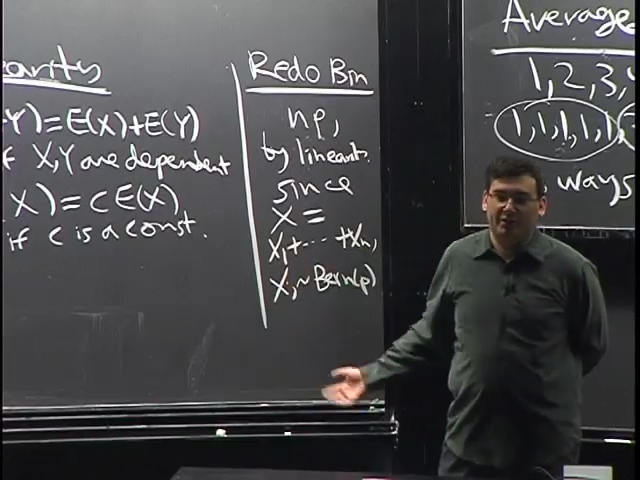 earity
Y)=E(X)+E(Y)
if X,Y are dependent
X)=cE(X)
if c is a const.
Redo Bin
np,
by linearity
since
X =
X₁+⋯+Xₙ,
Xⱼ~Bern(p)
Average
1,2,3,4
1,1,1,1,1,
ways